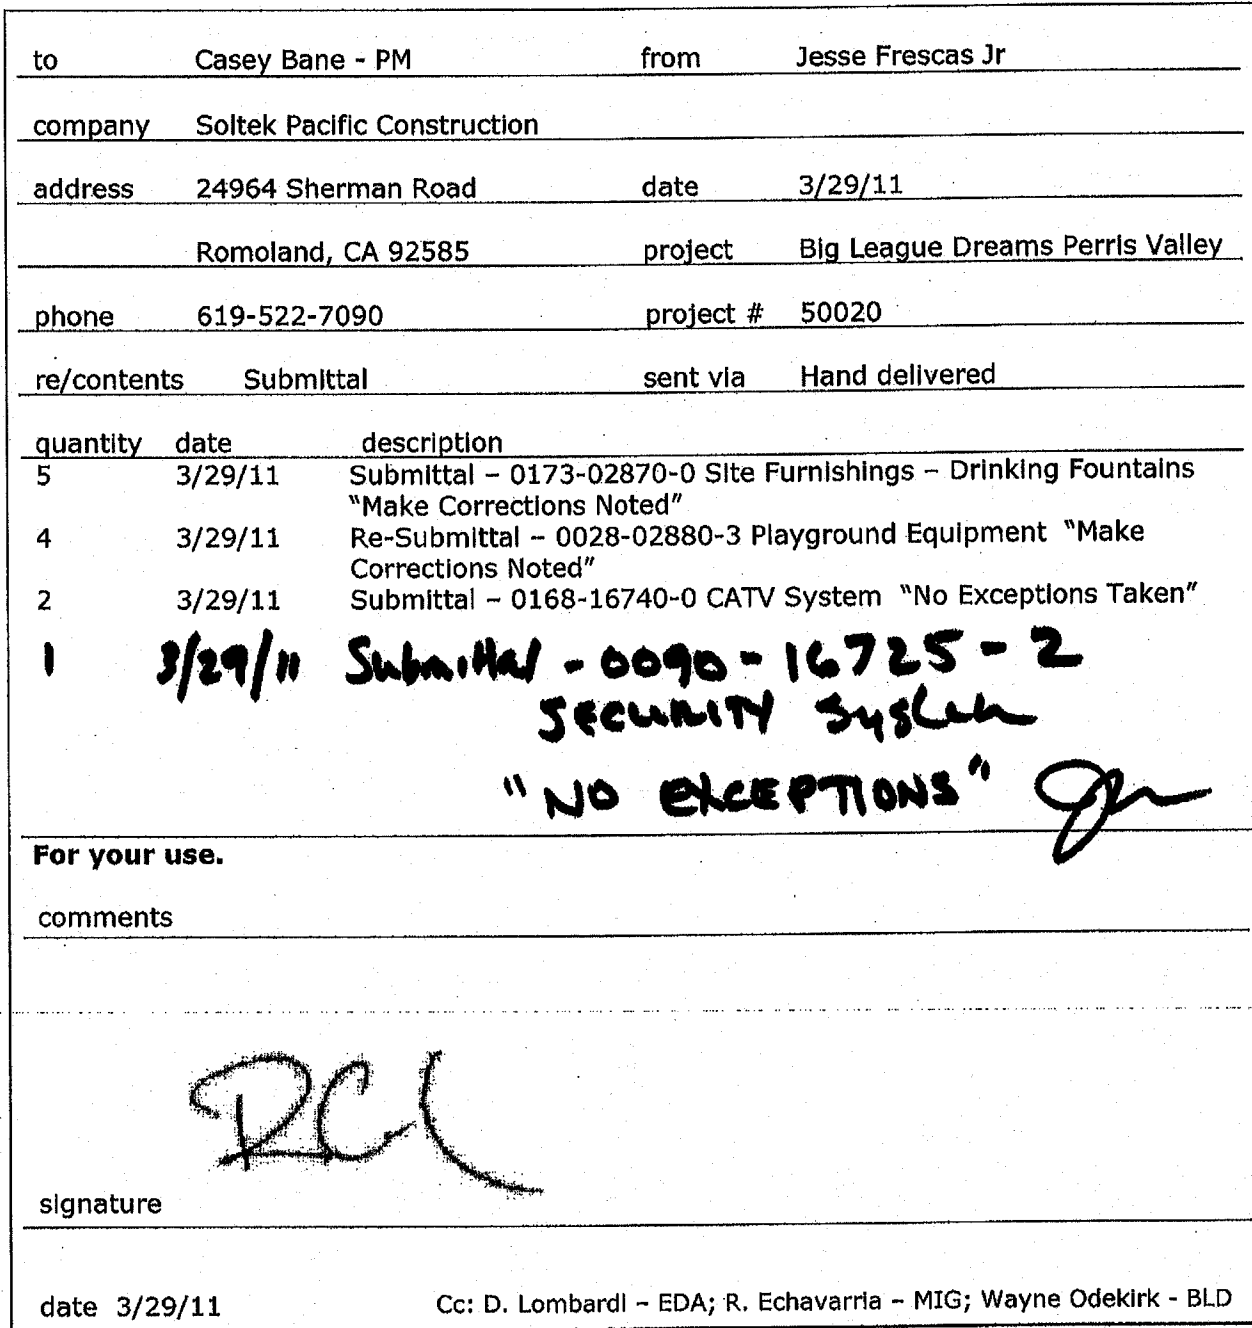 to Casey Bane - PM from Jesse Frescas Jr
company Soltek Pacific Construction
address 24964 Sherman Road date 3/29/11
Romoland, CA 92585 project Big League Dreams Perris Valley
phone 619-522-7090 project # 50020
re/contents Submittal sent via Hand delivered
quantity date description
5 3/29/11 Submittal – 0173-02870-0 Site Furnishings – Drinking Fountains
“Make Corrections Noted”
4 3/29/11 Re-Submittal – 0028-02880-3 Playground Equipment “Make
Corrections Noted”
2 3/29/11 Submittal – 0168-16740-0 CATV System “No Exceptions Taken”
1 3/29/11 Submittal - 0090-16725-2
SECURITY System
"NO EXCEPTIONS"
For your use.
comments
signature
date 3/29/11 Cc: D. Lombardi – EDA; R. Echavarria – MIG; Wayne Odekirk - BLD